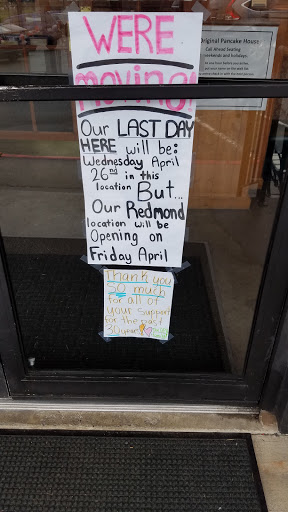 WERE
moving!
Original Pancake House
Call Ahead Seating
weekends and holidays.
Our LAST DAY
HERE will be:
Wednesday April
26nd in this
location But...
Our Redmond
location will be
Opening on
Friday April
Thank you
SO much
for all of
your support
for the past
30 years!